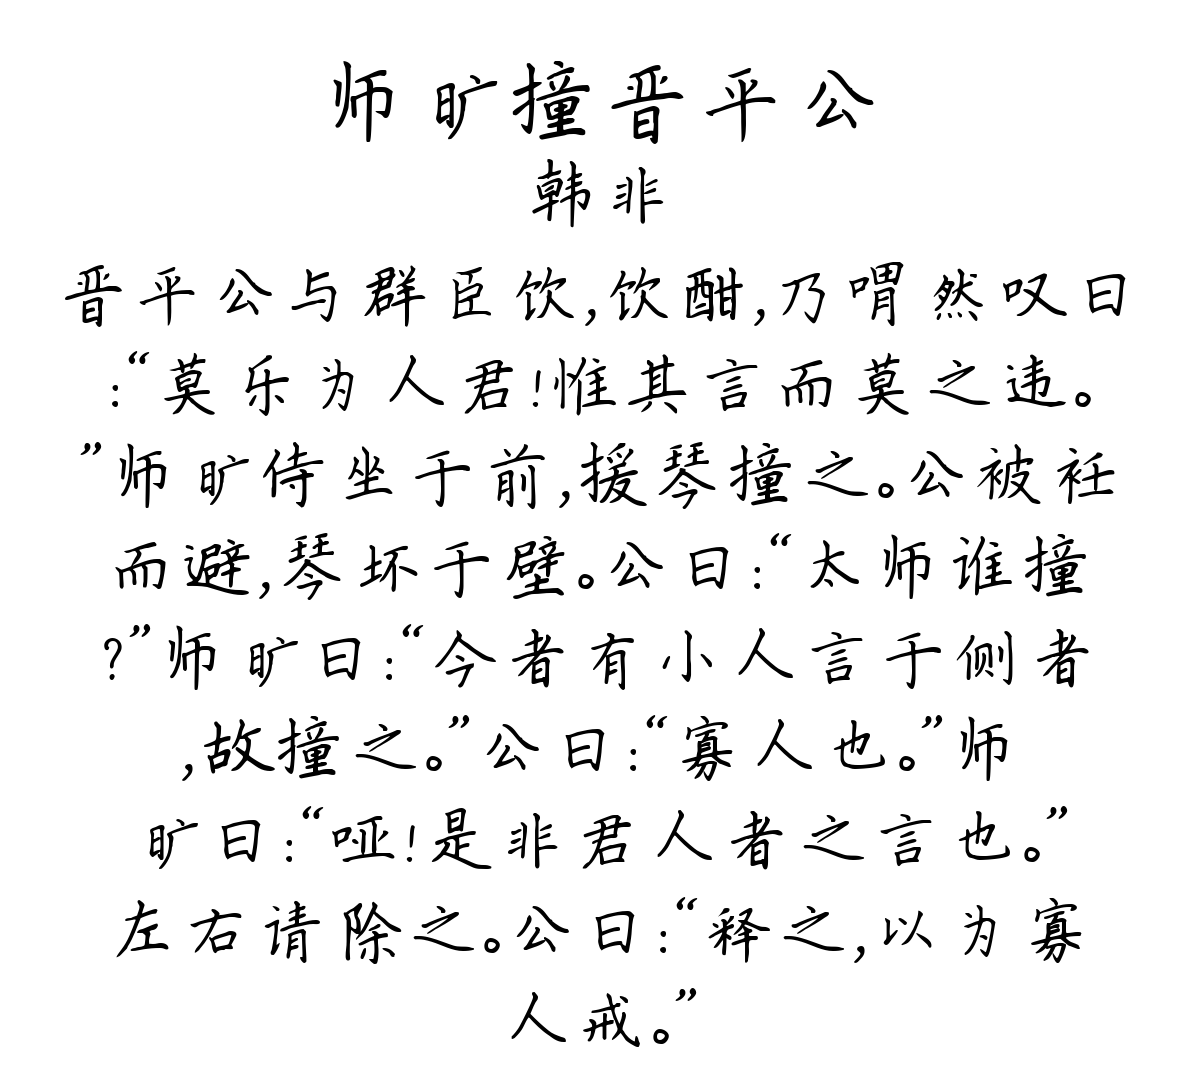 师旷撞晋平公
韩非
晋平公与群臣饮,饮酣,乃喟然叹曰
:“莫乐为人君!惟其言而莫之违。
”师旷侍坐于前,援琴撞之。公被衽
而避,琴坏于壁。公曰:“太师谁撞
?”师旷曰:“今者有小人言于侧者
,故撞之。”公曰:“寡人也。”师
旷曰:“哑!是非君人者之言也。”
左右请除之。公曰:“释之,以为寡
人戒。”